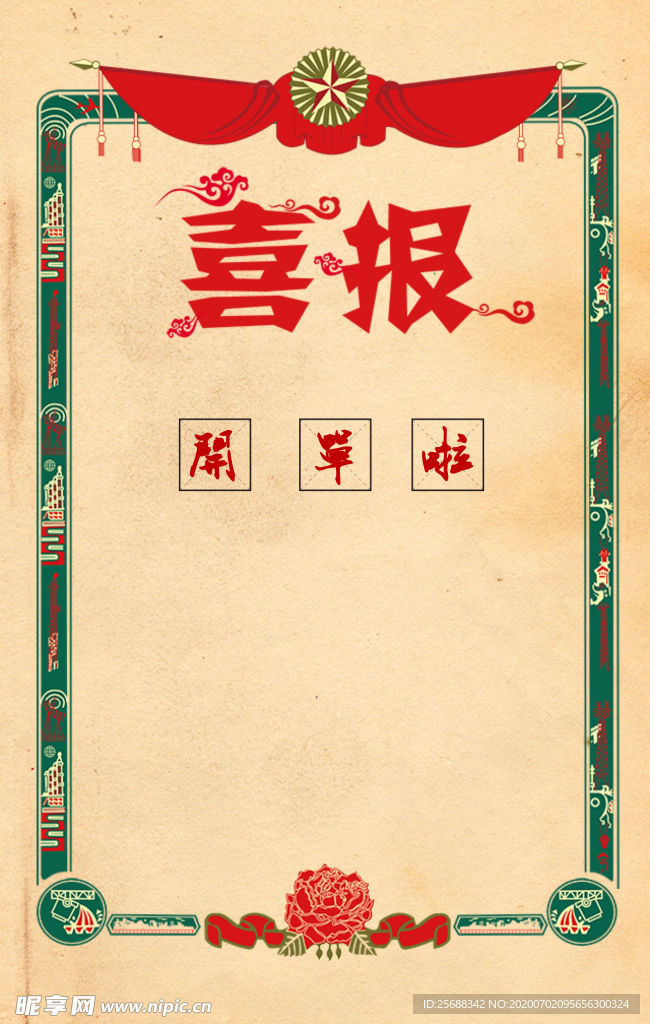 喜报
開單啦
昵享网 www.nipic.cn
ID:25688342 NO:20200702095656300324